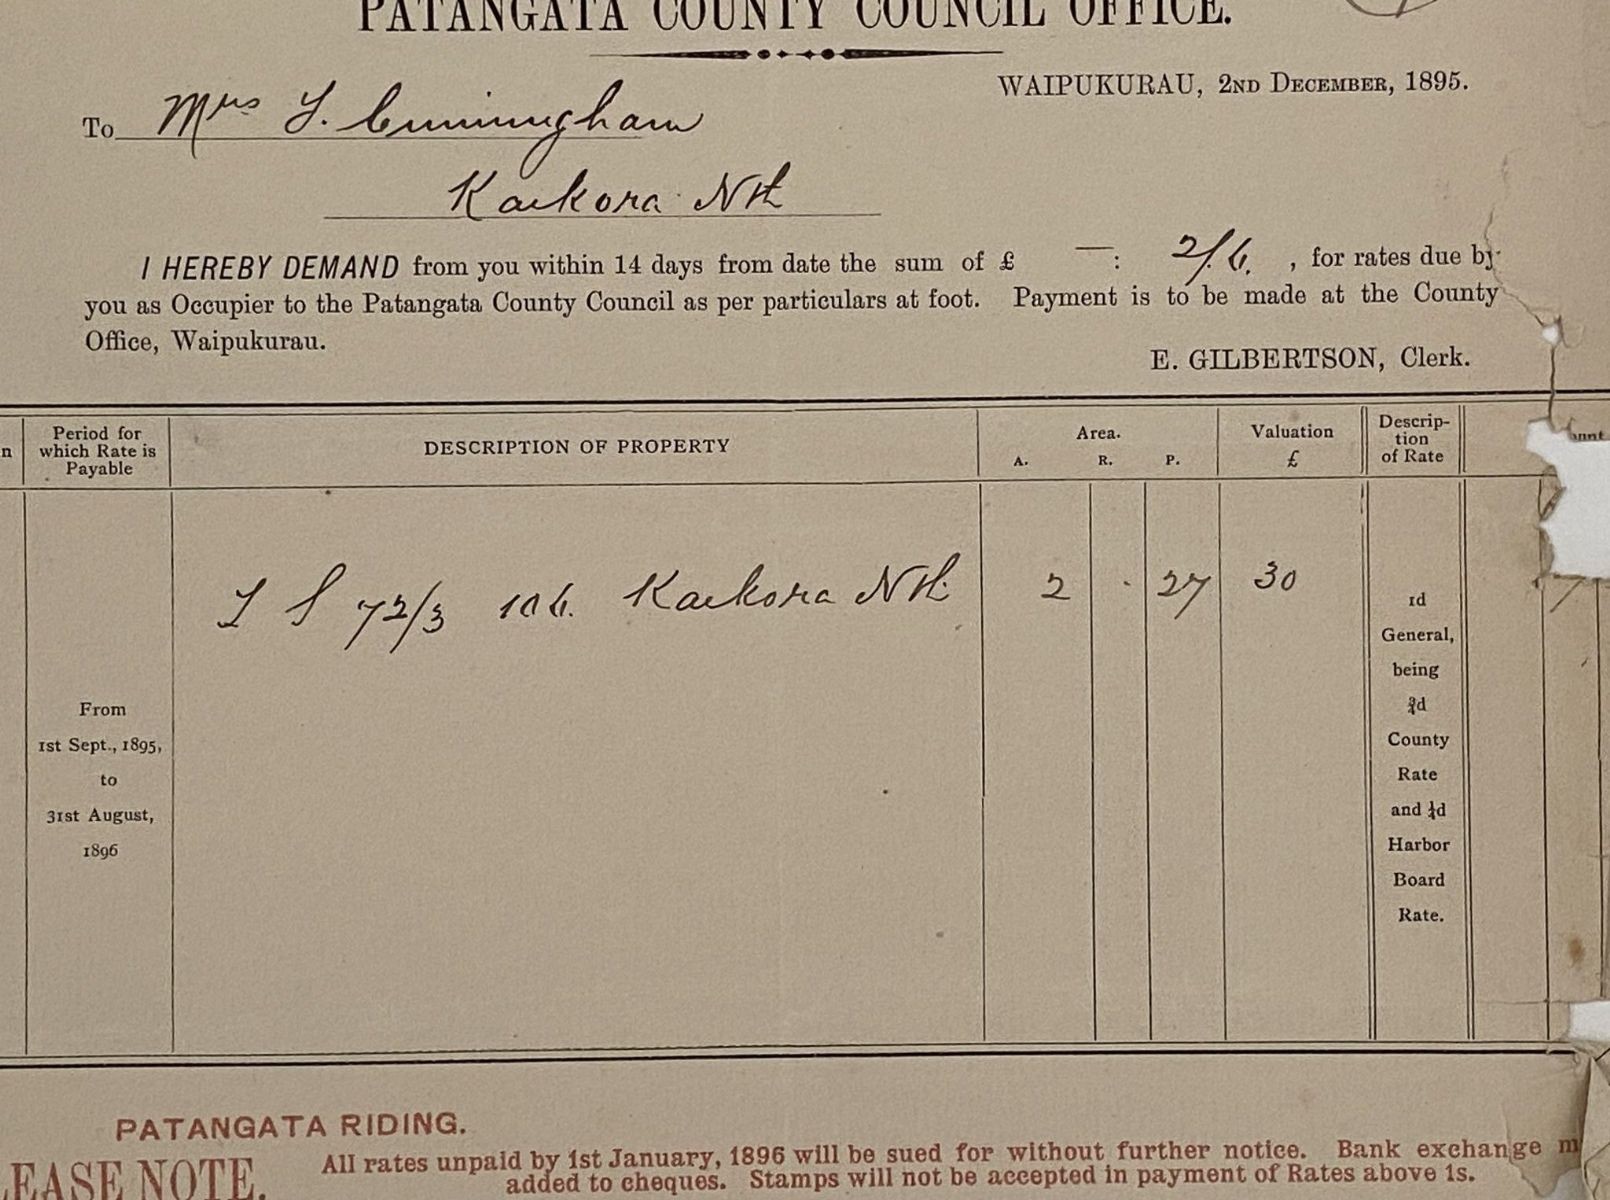 PATANGATA COUNTY COUNCIL OFFICE.
WAIPUKURAU, 2ND DECEMBER, 1895.
To Mrs Y. Cunningham
Kaikora Nth
I HEREBY DEMAND from you within 14 days from date the sum of £ — : 2/6. , for rates due by
you as Occupier to the Patangata County Council as per particulars at foot. Payment is to be made at the County
Office, Waipukurau.
E. GILBERTSON, Clerk.
n
Period for
which Rate is
Payable
DESCRIPTION OF PROPERTY
Area.
A. R. P.
Valuation
£
Descrip-
tion
of Rate
ount
T S 72/3 106. Kaikora Nth. 2 . 27 30
From
1st Sept., 1895,
to
31st August,
1896
1d
General,
being
¾d
County
Rate
and ¼d
Harbor
Board
Rate.
PATANGATA RIDING.
EASE NOTE.
All rates unpaid by 1st January, 1896 will be sued for without further notice. Bank exchange m
added to cheques. Stamps will not be accepted in payment of Rates above 1s.